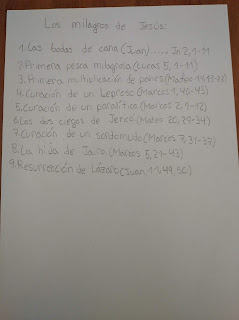 Los milagros de Jesús:
1. Las bodas de cana (Juan)..... Jn 2,1-11
2. Primera pesca milagrosa (Lucas 5,1-11)
3. Primera multiplicación de panes (Mateo 14,13-21)
4. Curación de un leproso (Marcos 1,40-45)
5. Curación de un paralítico (Marcos 2,1-12)
6. Los dos ciegos de Jericó. (Mateo 20,29-34)
7. Curación de un sordomudo (Marcos 7,31-37)
8. La hija de Jairo. (Marcos 5,21-43)
9. Resurrección de Lázaro (Juan 11,49,50)